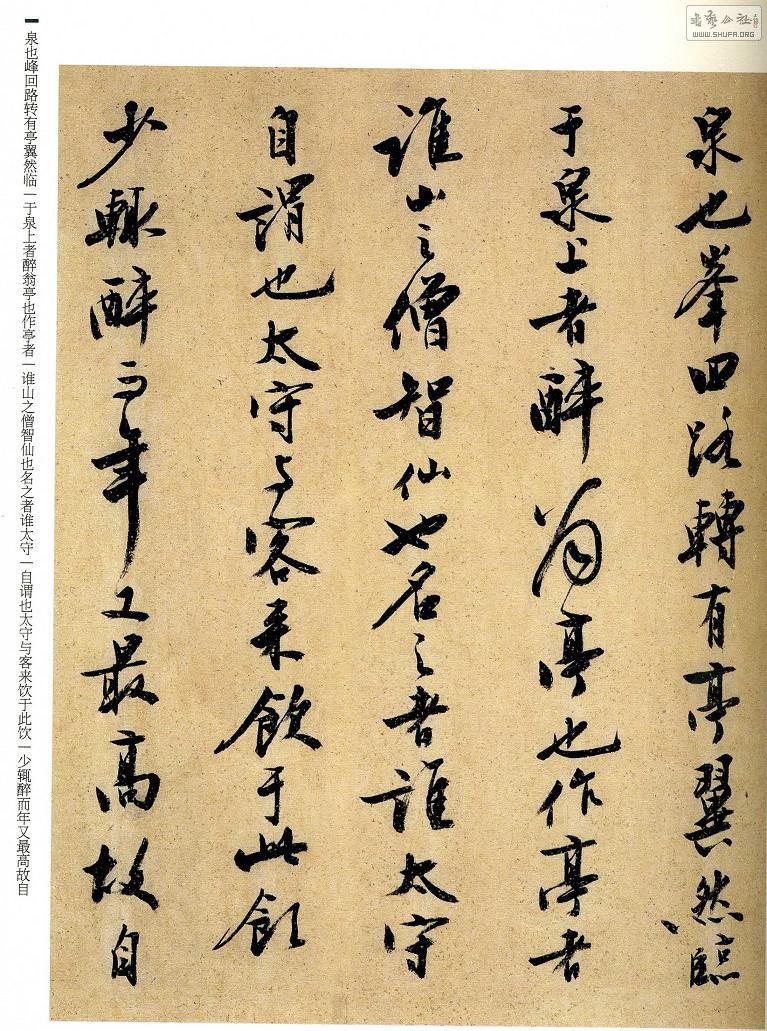 泉也峰回路转有亭翼然临一于泉上者醉翁亭也作亭者一谁山之僧智仙也名之者谁太守一自谓也太守与客来饮于此饮一少辄醉而年又最高故自
书艺公社
WWW.SHUFA.ORG
泉也峯回路轉有亭翼然臨
于泉上者醉翁亭也作亭者
誰山之僧智仙也名之者誰太守
自謂也太守与客来飲于此飲
少輒醉而年又最高故自